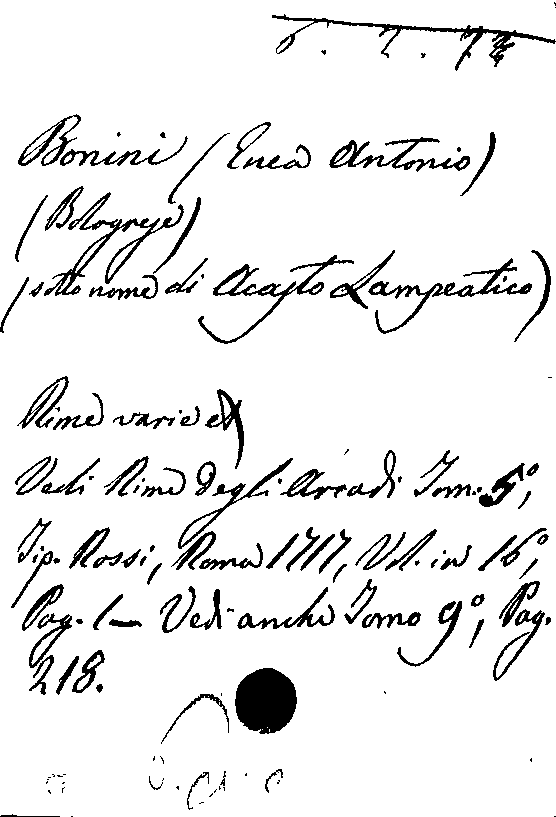 6. 2. 72
Bonini (Enea Antonio)
(Bolognese)
(sotto nome di Acasto Lampeatico)
Rime varie
Vedi Rime degli Arcadi Tom. 5°,
Tip. Rossi, Roma 1717, Vol. in 16°,
Pag. 1— Vedi anche Tomo 9°, Pag.
218.